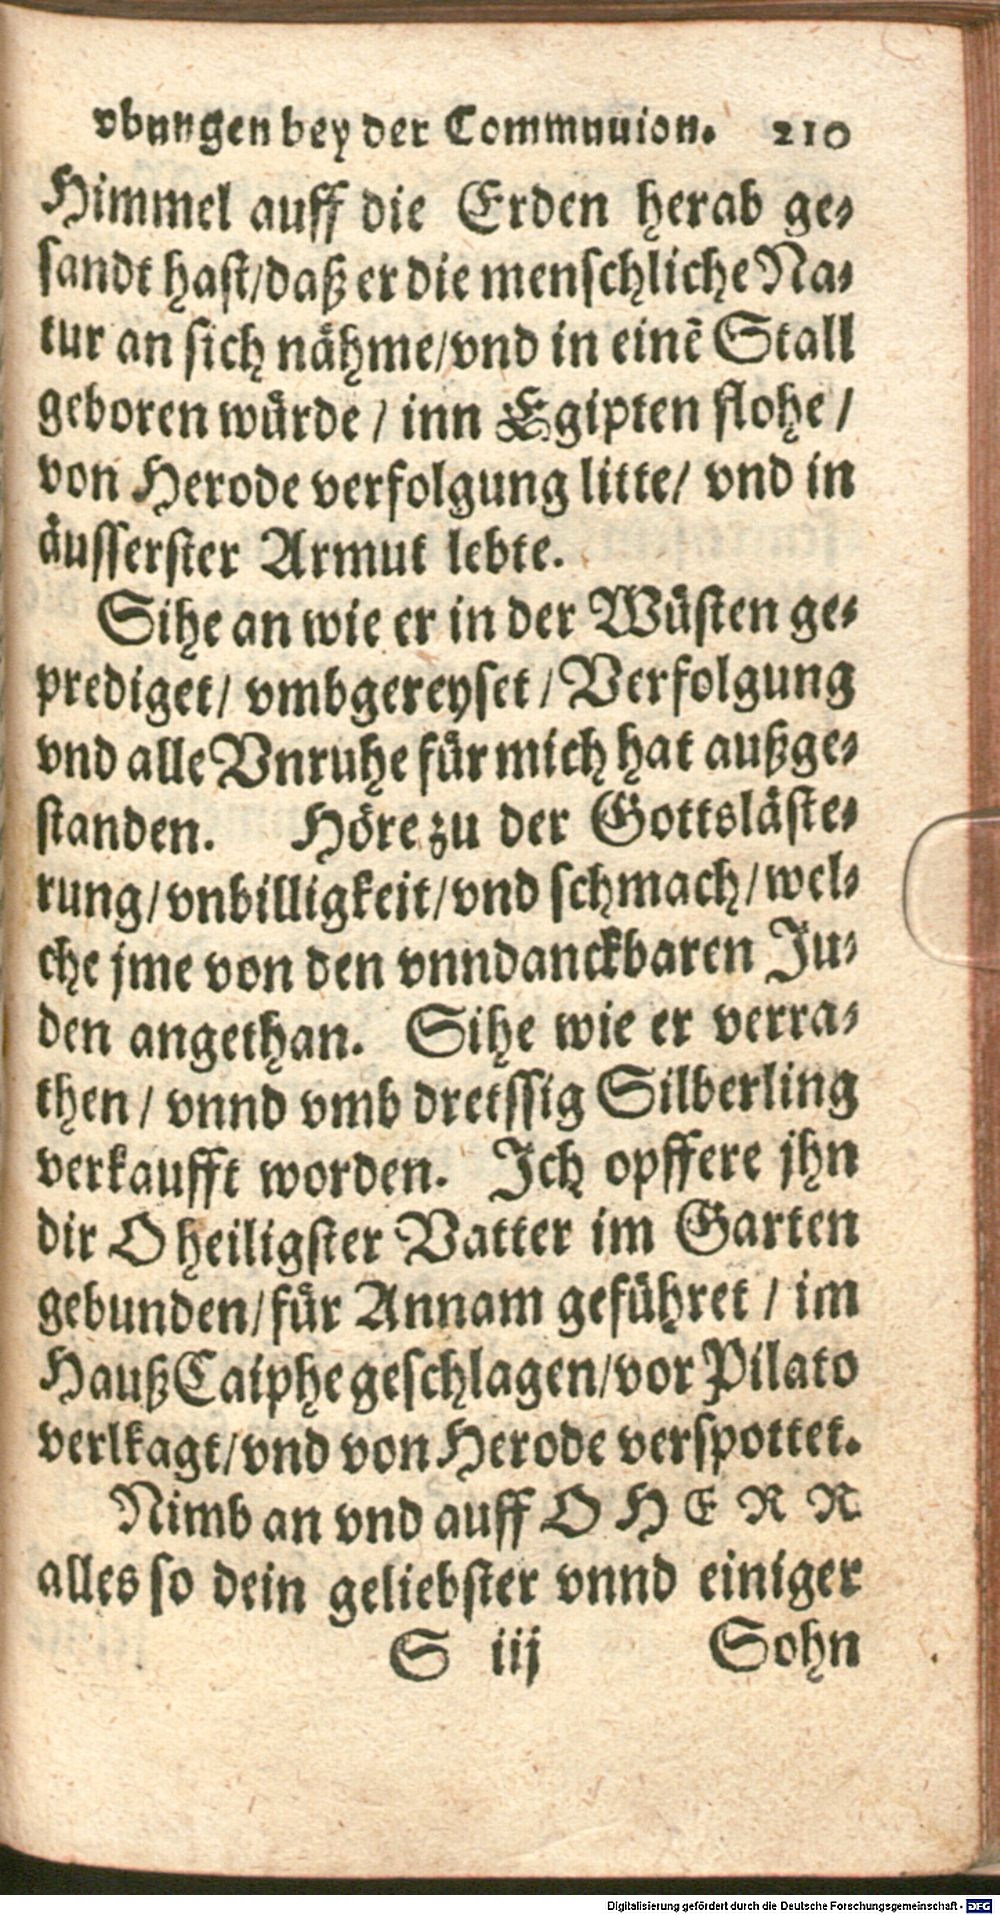 vbungen bey der Communion. 210
Himmel auff die Erden herab ge⸗
sandt hast/daß er die menschliche Na⸗
tur an sich nähme/vnd in einē Stall
geboren würde / inn Egipten flohe /
von Herode verfolgung litte/ vnd in
äusserster Armut lebte.
Sihe an wie er in der Wüsten ge⸗
prediget/ vmbgereyset / Verfolgung
vnd alle Vnruhe für mich hat außge⸗
standen. Höre zu der Gottsläste⸗
rung/vnbilligkeit/vnd schmach/wel⸗
che jme von den vnndanckbaren Ju⸗
den angethan. Sihe wie er verra⸗
then / vnnd vmb dreissig Silberling
verkaufft worden. Ich opffere jhn
dir O heiligster Vatter im Garten
gebunden/für Annam geführet / im
Hauß Caiphe geschlagen/vor Pilato
verlkagt/vnd von Herode verspottet.
Nimb an vnd auff O HERR
alles so dein geliebster vnnd einiger
S iij Sohn
Digitalisierung gefördert durch die Deutsche Forschungsgemeinschaft - DFG